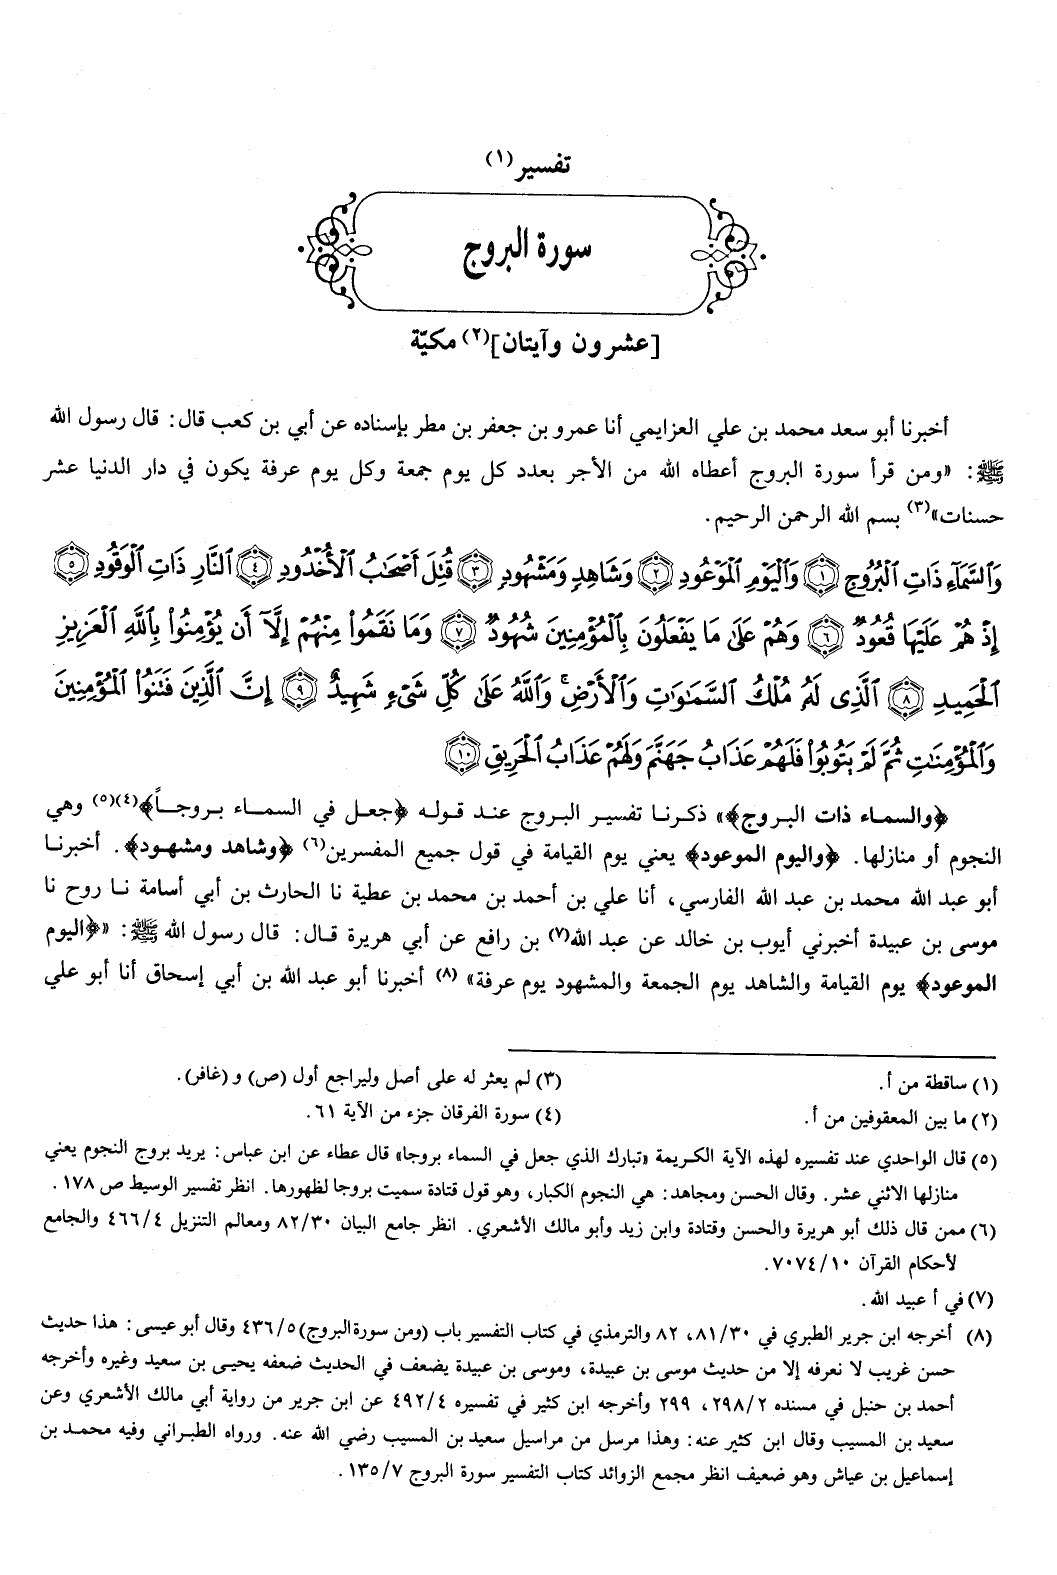 تفسير(١)
سورة البروج
[عشرون وآيتان](٢) مكيّة
أخبرنا أبو سعد محمد بن علي العزايمي أنا عمرو بن جعفر بن مطر بإسناده عن أبي بن كعب قال: قال رسول الله
ﷺ: «ومن قرأ سورة البروج أعطاه الله من الأجر بعدد كل يوم جمعة وكل يوم عرفة يكون في دار الدنيا عشر
حسنات»(٣) بسم الله الرحمن الرحيم.
وَالسَّمَآءِ ذَاتِ الْبُرُوجِ ١ وَالْيَوْمِ الْمَوْعُودِ ٢ وَشَاهِدٍ وَمَشْهُودٍ ٣ قُتِلَ أَصْحَابُ الْأُخْدُودِ ٤ النَّارِ ذَاتِ الْوَقُودِ ٥
إِذْ هُمْ عَلَيْهَا قُعُودٌ ٦ وَهُمْ عَلَىٰ مَا يَفْعَلُونَ بِالْمُؤْمِنِينَ شُهُودٌ ٧ وَمَا نَقَمُوا۟ مِنْهُمْ إِلَّآ أَن يُؤْمِنُوا۟ بِاللَّهِ الْعَزِيزِ
الْحَمِيدِ ٨ الَّذِى لَهُۥ مُلْكُ السَّمَٰوَٰتِ وَالْأَرْضِ ۚ وَاللَّهُ عَلَىٰ كُلِّ شَىْءٍ شَهِيدٌ ٩ إِنَّ الَّذِينَ فَتَنُوا۟ الْمُؤْمِنِينَ
وَالْمُؤْمِنَٰتِ ثُمَّ لَمْ يَتُوبُوا۟ فَلَهُمْ عَذَابُ جَهَنَّمَ وَلَهُمْ عَذَابُ الْحَرِيقِ ١٠
﴿والسماء ذات البروج﴾» ذكرنا تفسير البروج عند قوله ﴿جعل في السماء بروجاً﴾(٤)(٥) وهي
النجوم أو منازلها. ﴿واليوم الموعود﴾ يعني يوم القيامة في قول جميع المفسرين(٦) ﴿وشاهد ومشهود﴾. أخبرنا
أبو عبد الله محمد بن عبد الله الفارسي، أنا علي بن أحمد بن محمد بن عطية نا الحارث بن أبي أسامة نا روح نا
موسى بن عبيدة أخبرني أيوب بن خالد عن عبد الله(٧) بن رافع عن أبي هريرة قال: قال رسول الله ﷺ: «﴿اليوم
الموعود﴾ يوم القيامة والشاهد يوم الجمعة والمشهود يوم عرفة»(٨) أخبرنا أبو عبد الله بن أبي إسحاق أنا أبو علي
(١) ساقطة من أ.
(٢) ما بين المعقوفين من أ.
(٣) لم يعثر له على أصل وليراجع أول (ص) و (غافر).
(٤) سورة الفرقان جزء من الآية ٦١.
(٥) قال الواحدي عند تفسيره لهذه الآية الكريمة «تبارك الذي جعل في السماء بروجا» قال عطاء عن ابن عباس: يريد بروج النجوم يعني
منازلها الاثني عشر. وقال الحسن ومجاهد: هي النجوم الكبار، وهو قول قتادة سميت بروجا لظهورها. انظر تفسير الوسيط ص ١٧٨.
(٦) ممن قال ذلك أبو هريرة والحسن وقتادة وابن زيد وأبو مالك الأشعري. انظر جامع البيان ٨٢/٣٠ ومعالم التنزيل ٤٦٦/٤ والجامع
لأحكام القرآن ٧٠٧٤/١٠.
(٧) في أ عبيد الله.
(٨) أخرجه ابن جرير الطبري في ٨١/٣٠، ٨٢ والترمذي في كتاب التفسير باب (ومن سورة البروج) ٤٣٦/٥ وقال أبو عيسى: هذا حديث
حسن غريب لا نعرفه إلا من حديث موسى بن عبيدة، وموسى بن عبيدة يضعف في الحديث ضعفه يحيى بن سعيد وغيره وأخرجه
أحمد بن حنبل في مسنده ٢٩٨/٢، ٢٩٩ وأخرجه ابن كثير في تفسيره ٤٩٢/٤ عن ابن جرير من رواية أبي مالك الأشعري وعن
سعيد بن المسيب وقال ابن كثير عنه: وهذا مرسل من مراسيل سعيد بن المسيب رضي الله عنه. ورواه الطبراني وفيه محمد بن
إسماعيل بن عياش وهو ضعيف انظر مجمع الزوائد كتاب التفسير سورة البروج ١٣٥/٧.